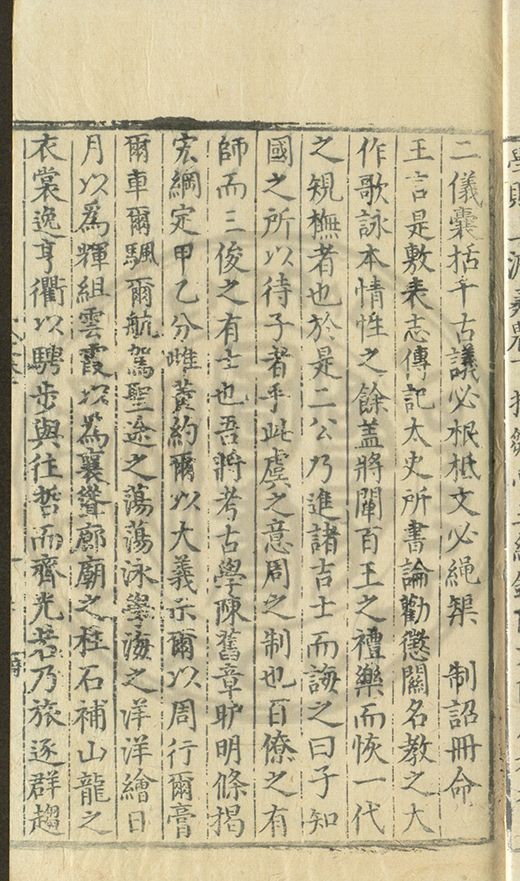 二儀囊括千古議必根柢文必繩榘　制詔冊命
王言是敷表志傳記太史所書論勸懲關名教之大
作歌詠本情性之餘蓋將闡百王之禮樂而恢一代
之規橅者也於是二公乃進諸吉士而誨之曰子知
國之所以待子者乎此虞之意周之制也百僚之有
師而三俊之有士也吾將考古學陳舊章旷明條揭
宏綱定甲乙分雌黃約爾以大義示爾以周行爾膏
爾車爾颿爾航駕聖途之蕩蕩泳學海之洋洋繪日
月以為輝組雲霞以為襄聳廊廟之柱石補山龍之
衣裳逸亨衢以騁步與往哲而齊光若乃旅逐群趨